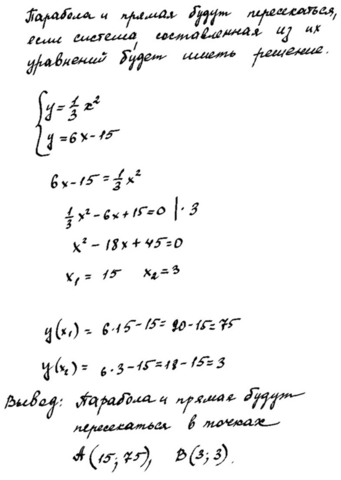 Парабола и прямая будут пересекаться,
если система, составленная из их
уравнений будет иметь решение.
{y = 1/3 x²
{y = 6x - 15
6x - 15 = 1/3 x²
1/3 x² - 6x + 15 = 0 | · 3
x² - 18x + 45 = 0
x₁ = 15 x₂ = 3
y(x₁) = 6·15 - 15 = 90 - 15 = 75
y(x₂) = 6·3 - 15 = 18 - 15 = 3
Вывод: Парабола и прямая будут
пересекаться в точках
A(15; 75), B(3; 3).